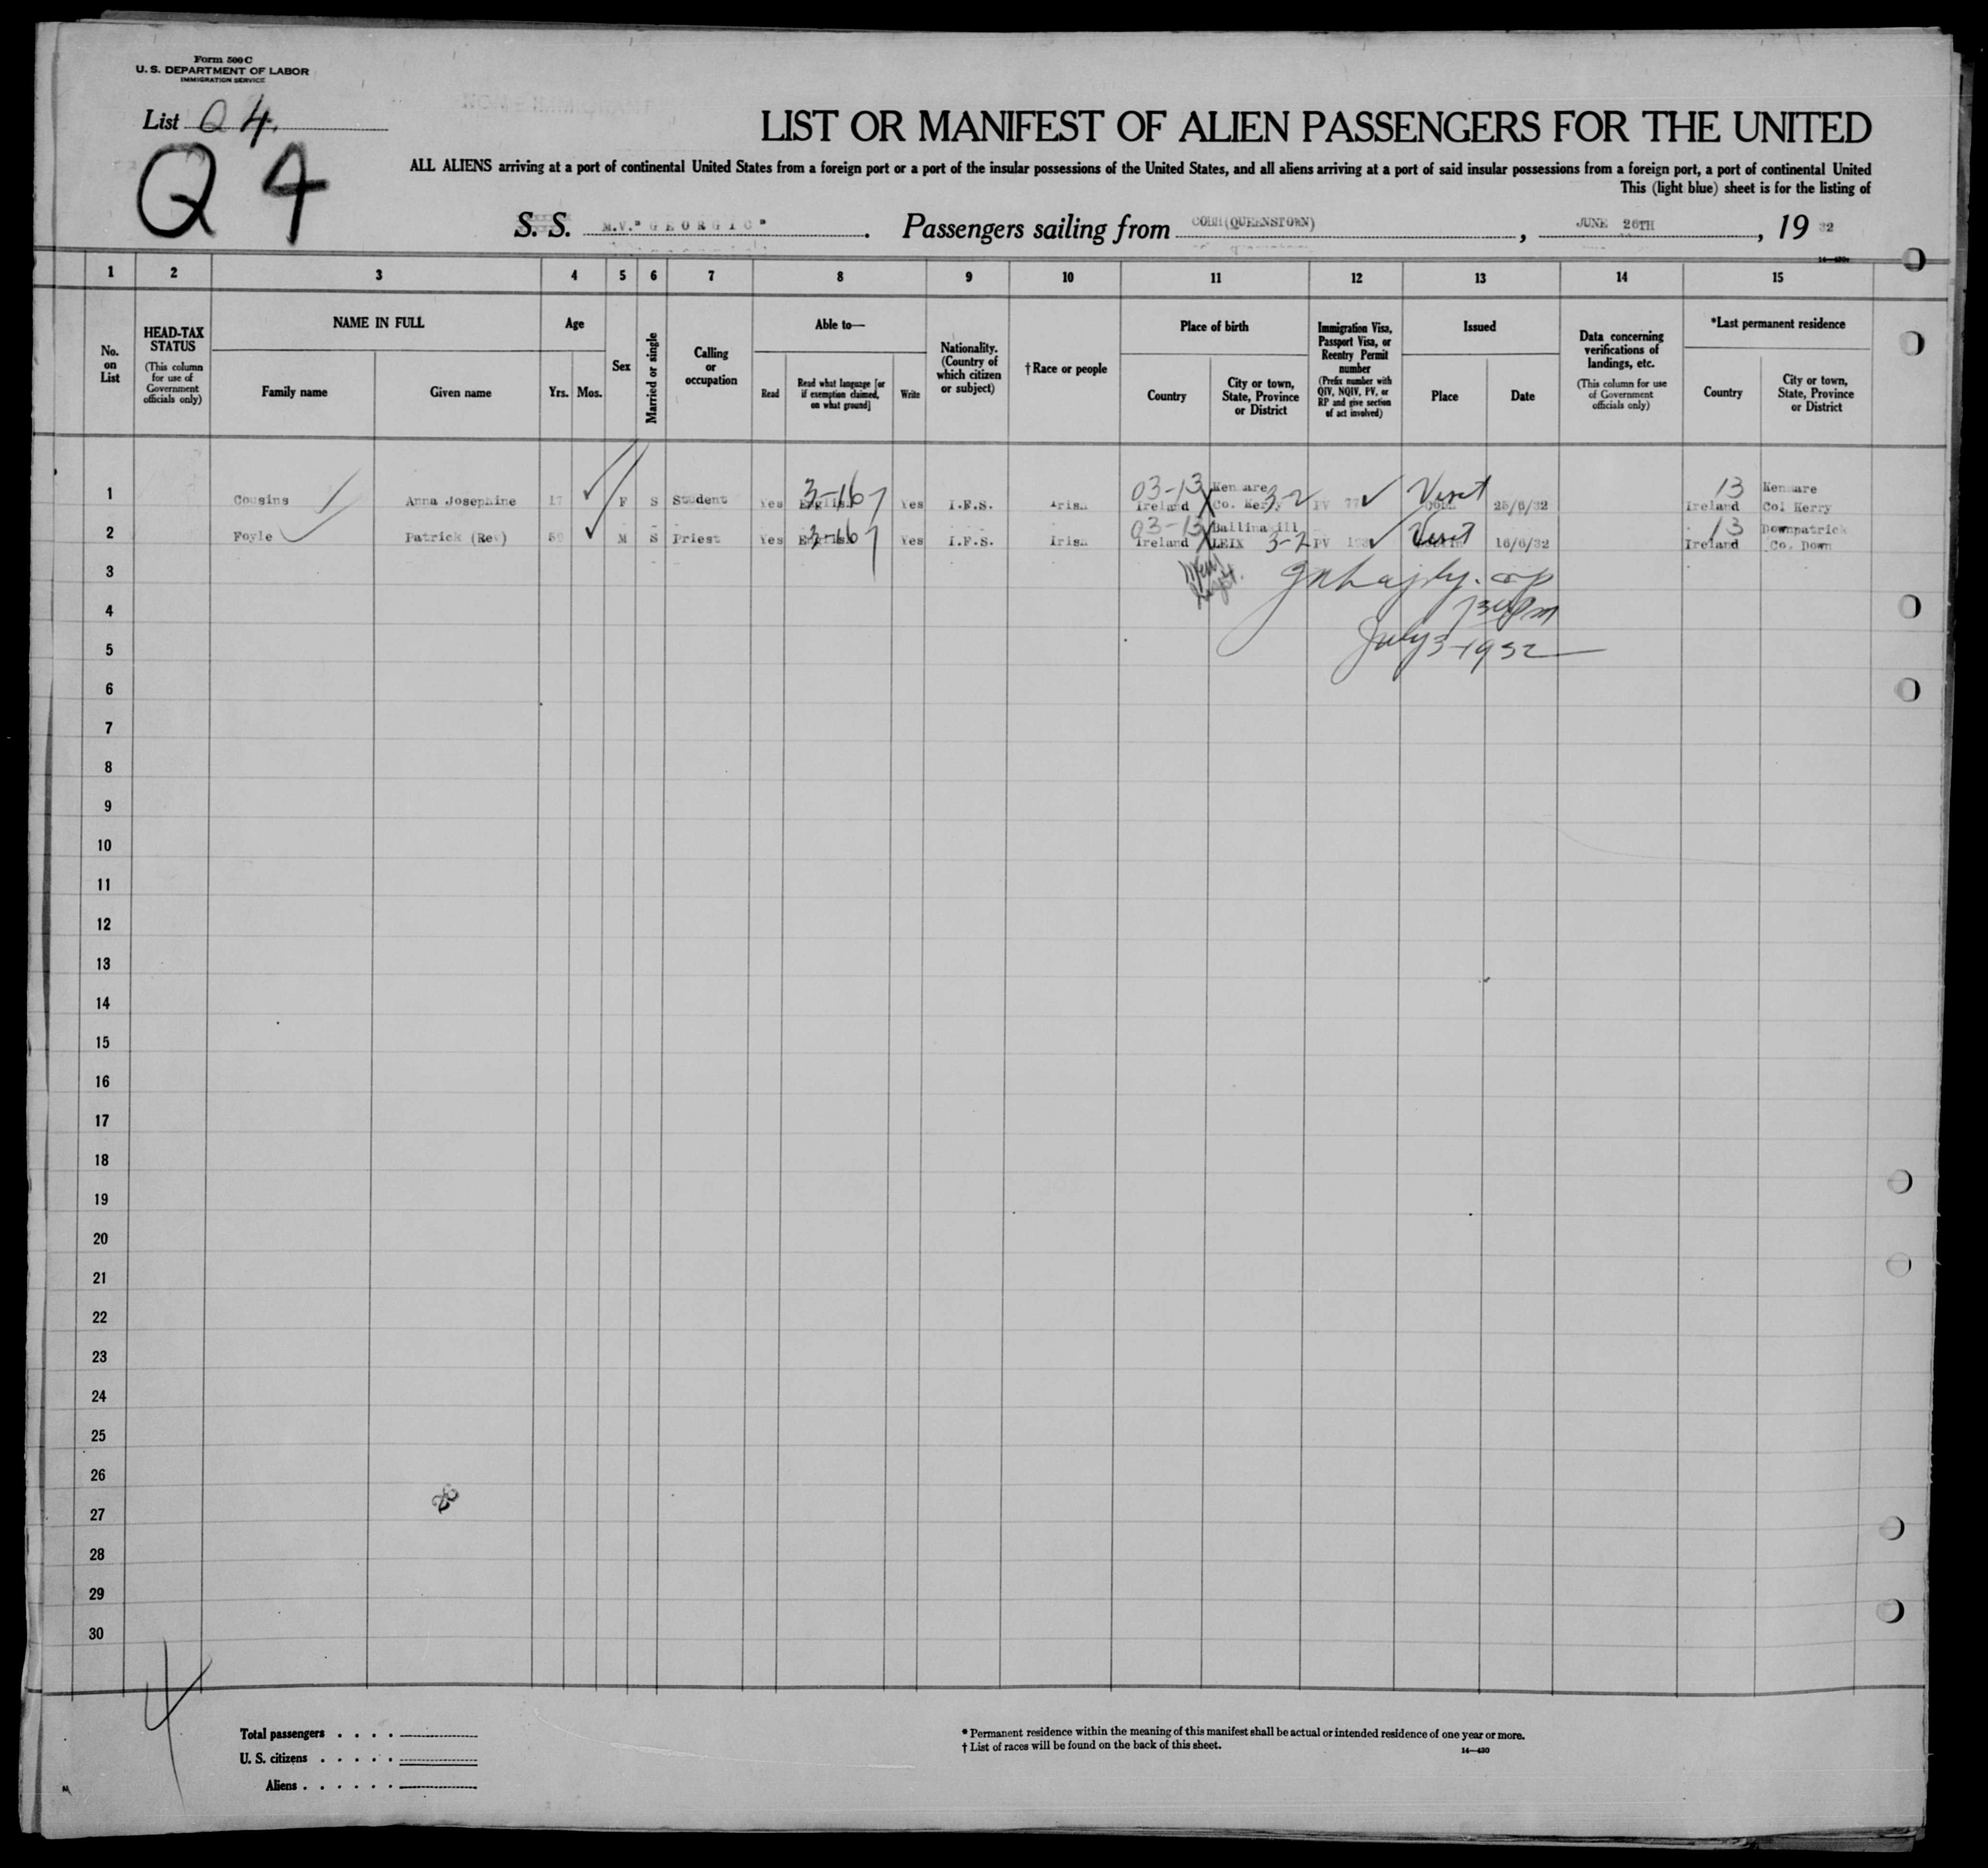 Form 500 C
U. S. DEPARTMENT OF LABOR
IMMIGRATION SERVICE
List Q 4.
Q 4
LIST OR MANIFEST OF ALIEN PASSENGERS FOR THE UNITED
ALL ALIENS arriving at a port of continental United States from a foreign port or a port of the insular possessions of the United States, and all aliens arriving at a port of said insular possessions from a foreign port, a port of continental United
This (light blue) sheet is for the listing of
S. S. M.V. "GEORGIC". Passengers sailing from COBH (QUEENSTOWN), JUNE 26TH, 19 32
14—430
1 2 3 4 5 6 7 8 9 10 11 12 13 14 15
No. on List
HEAD-TAX STATUS
(This column for use of Government officials only)
NAME IN FULL
Family name
Given name
Age
Yrs. Mos.
Sex
Married or single
Calling or occupation
Able to—
Read
Read what language [or if exemption claimed, on what ground]
Write
Nationality. (Country of which citizen or subject)
† Race or people
Place of birth
Country
City or town, State, Province or District
Immigration Visa, Passport Visa, or Reentry Permit number
(Prefix number with QIV, NQIV, PV, or RP and give section of act involved)
Issued
Place
Date
Data concerning verifications of landings, etc.
(This column for use of Government officials only)
*Last permanent residence
Country
City or town, State, Province or District
03-13 Kenmare 13 Kenmare
1 Cousins Anna Josephine 17 F S Student Yes English 3-167 Yes I.F.S. Irish Ireland Co. Kerry 3-2 PV 77 Visit 25/6/32 Ireland Col Kerry
03-13 Ballinakill 13 Downpatrick
2 Foyle Patrick (Rev) M S Priest Yes English 3-167 Yes I.F.S. Irish Ireland LEIX 3-2 PV Visit 16/6/32 Ireland Co. Down
3
4
730 Pm
5
July 3-1932
6
7
8
9
10
11
12
13
14
15
16
17
18
19
20
21
22
23
24
25
26
27
28
29
30
Total passengers . . . .
U. S. citizens . . . . .
Aliens . . . . . .
* Permanent residence within the meaning of this manifest shall be actual or intended residence of one year or more.
† List of races will be found on the back of this sheet.
14—430